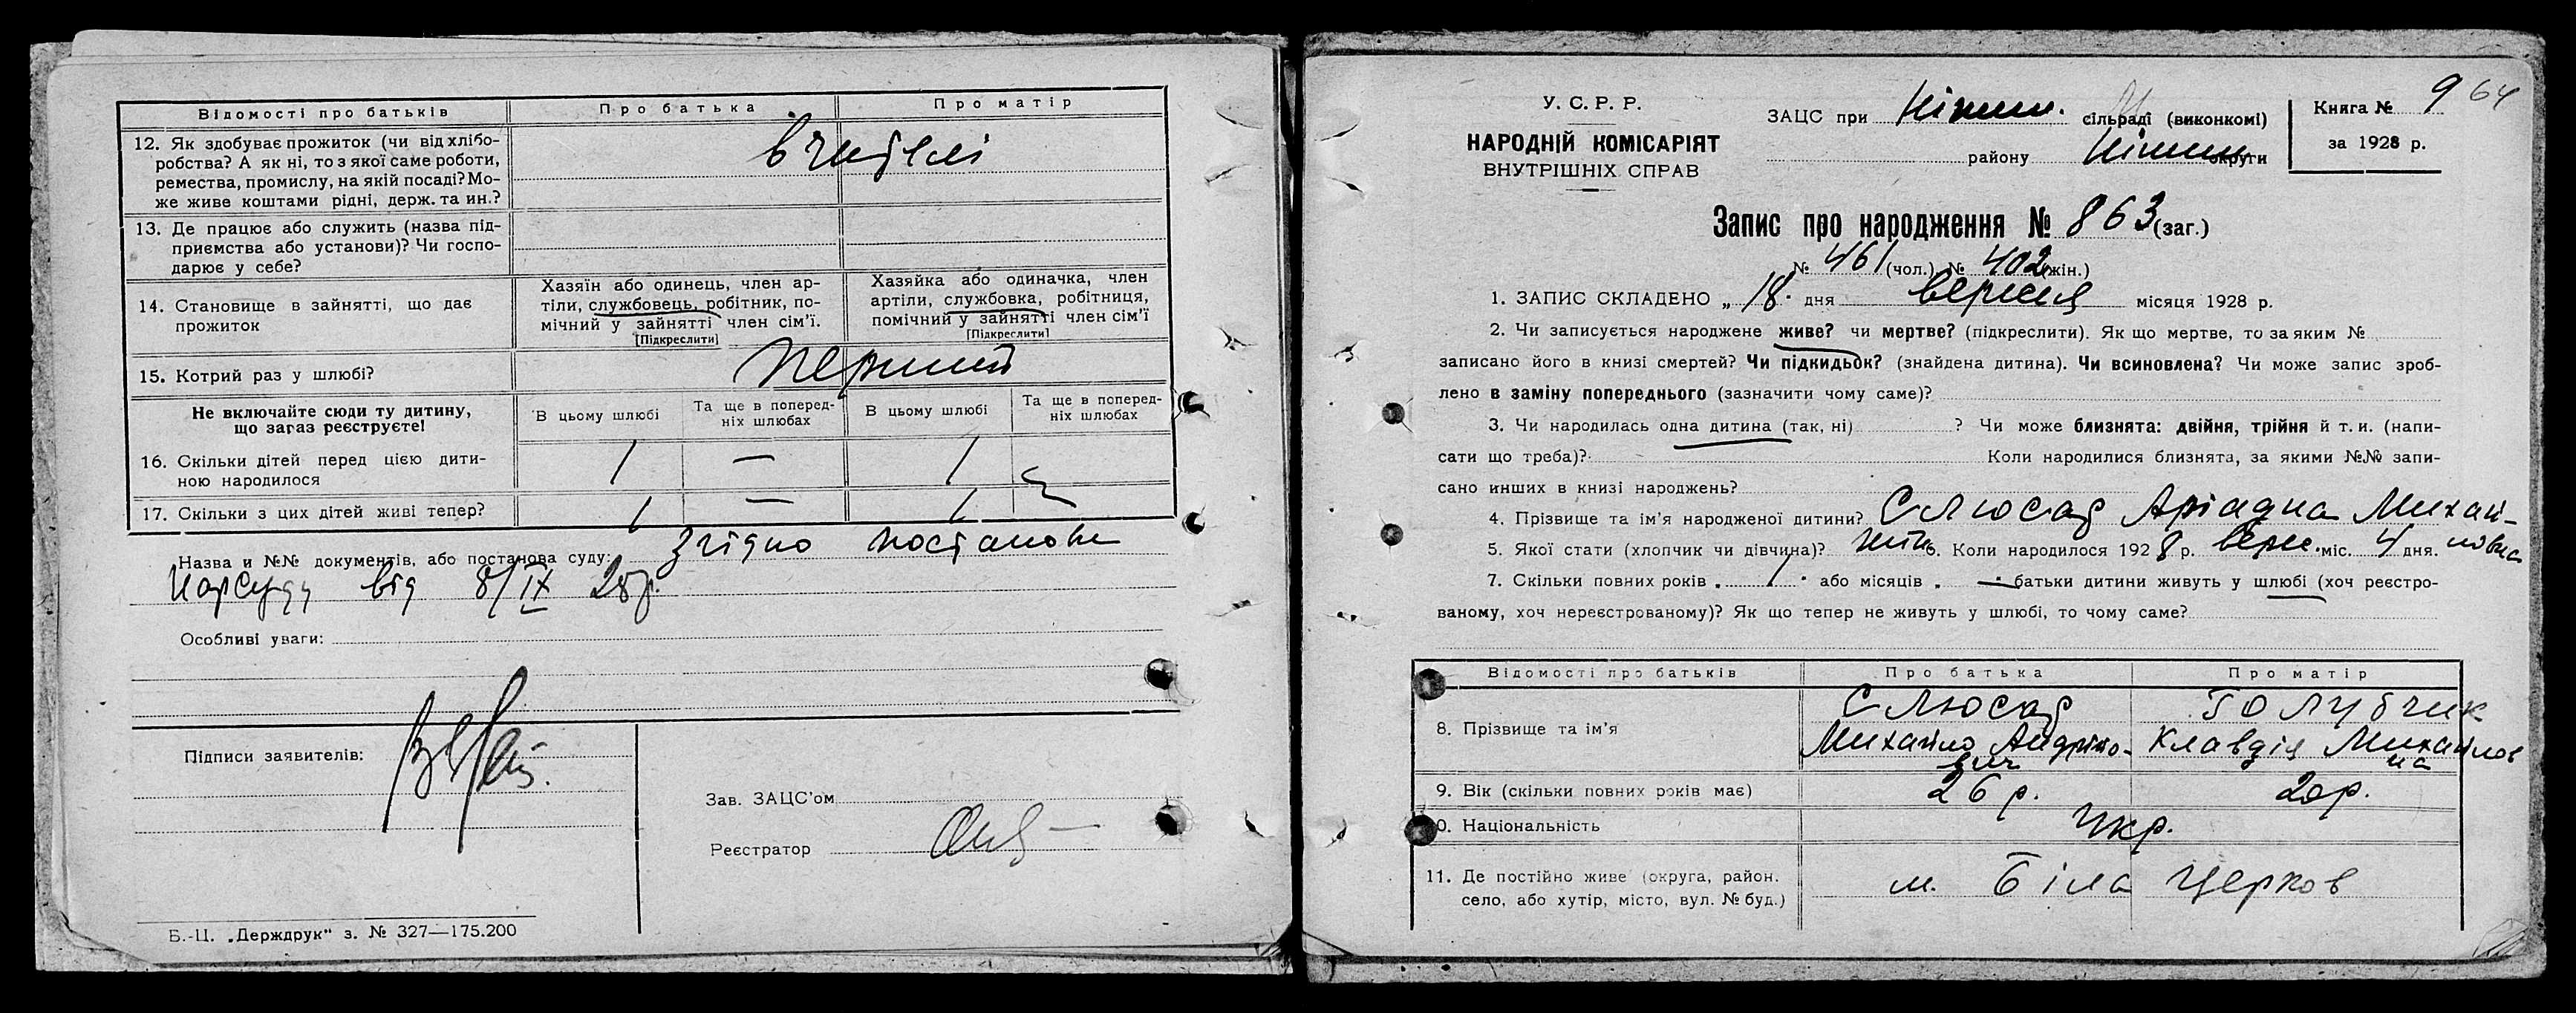 Відомості про батьків
Про батька
Про матір
12. Як здобуває прожиток (чи від хлібо-
робства? А як ні, то з якої саме роботи,
ремества, промислу, на якій посаді? Мо-
же живе коштами рідні, держ. та ин.?
вчителі
13. Де працює або служить (назва під-
приємства або установи)? Чи госпо-
дарює у себе?
14. Становище в зайнятті, що дає
прожиток
Хазяїн або одинець, член ар-
тіли, службовець, робітник, по-
мічний у зайнятті член сім'ї.
[Підкреслити]
Хазяйка або одиначка, член
артіли, службовка, робітниця,
помічний у зайнятті член сім'ї
[Підкреслити]
15. Котрий раз у шлюбі?
перший
Не включайте сюди ту дитину,
що зараз реєструєте!
В цьому шлюбі
Та ще в поперед-
ніх шлюбах
В цьому шлюбі
Та ще в поперед-
ніх шлюбах
16. Скільки дітей перед цією дити-
ною народилося
1 — 1
17. Скільки з цих дітей живі тепер?
1 — 1
Назва и №№ документів, або постанова суду: Згідно постанови
Нарсуду від 8/IX 28р.
Особливі уваги:
Підписи заявителів:
Зав. ЗАЦС'ом
Реєстратор
Б.-Ц. „Держдрук" з. № 327—175.200
У. С. Р. Р.
НАРОДНІЙ КОМІСАРІЯТ
ВНУТРІШНІХ СПРАВ
ЗАЦС при Ніжин. сільраді (виконкомі)
району Ніжин округи
Книга № 9 64
за 1928 р.
Запис про народження № 863 (заг.)
№ 461 (чол.) № 402 (жін.)
1. ЗАПИС СКЛАДЕНО „18" дня вересня місяця 1928 р.
2. Чи записується народжене живе? чи мертве? (підкреслити). Як що мертве, то за яким №
записано його в книзі смертей? Чи підкидьок? (знайдена дитина). Чи всиновлена? Чи може запис зроб-
лено в заміну попереднього (зазначити чому саме)?
3. Чи народилась одна дитина (так, ні) ? Чи може близнята: двійня, трійня й т. и. (напи-
сати що треба)? Коли народилися близнята, за якими №№ запи-
сано инших в книзі народжень?
4. Прізвище та ім'я народженої дитини? Слюсар Аріадна Михай-
ловна
5. Якої стати (хлопчик чи дівчина)? жін. 6. Коли народилося 1928 р. верес. міс. 4 дня.
7. Скільки повних років 1 або місяців — батьки дитини живуть у шлюбі (хоч реєстро-
ваному, хоч нереєстрованому)? Як що тепер не живуть у шлюбі, то чому саме?
Відомості про батьків
Про батька
Про матір
8. Прізвище та ім'я
Слюсар
Михайло Андріо-
вич
Голубчик
Клавдія Михайлов
на
9. Вік (скільки повних років має)
26 р.
20р.
10. Національність
Укр.
11. Де постійно живе (округа, район.
село, або хутір, місто, вул. № буд.)
м. Біла Церков